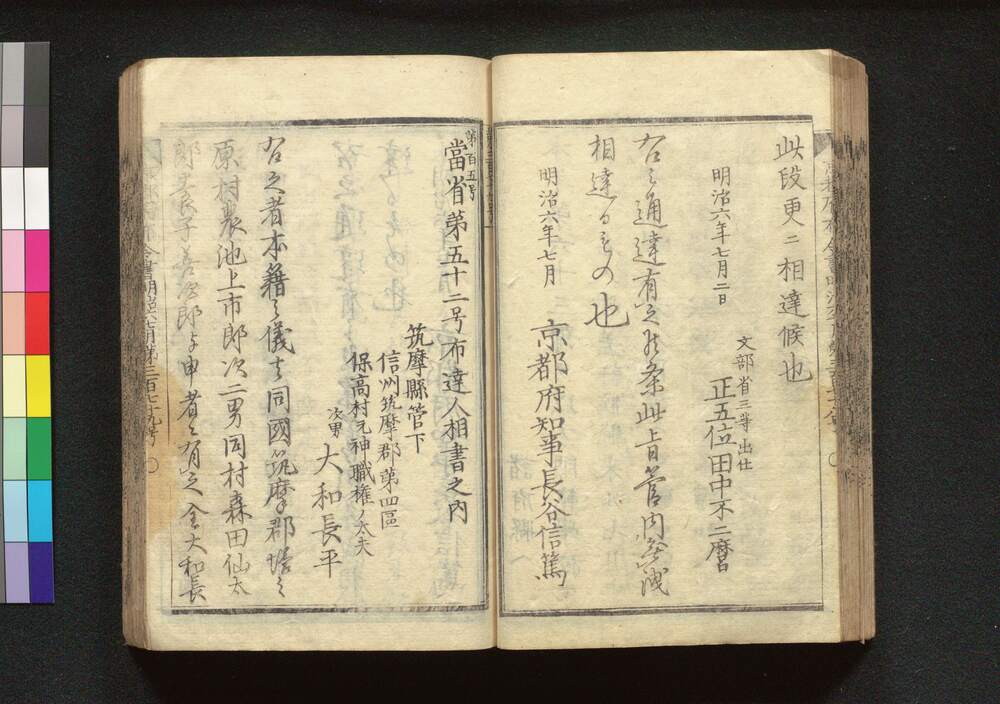 此段更ニ相達候也
明治六年七月二日
文部省三等出仕
正五位田中不二麿
右之通達有之候条此旨管内無洩
相達るもの也
明治六年七月
京都府知事長谷信篤
第百五号
當省第五十二号布達人相書之内
筑摩縣管下
信州筑摩郡第四區
保高村元神職権ノ太夫
次男
大和長平
右之者本籍之儀者同國筑摩郡
原村農池上市郎次二男同村森田仙太
郎養子善次郎与申者ニ有之全大和長